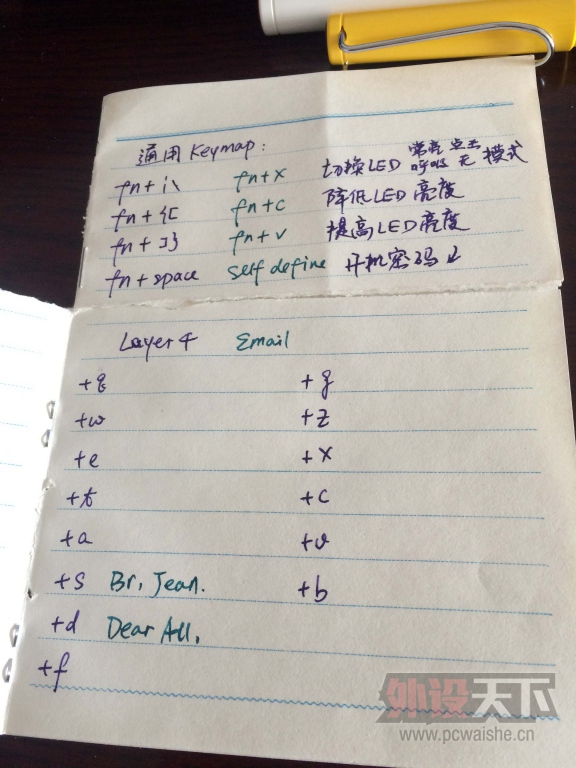 通用 Keymap:
fn + |\ fn + x 切换LED 常亮 点击 呼吸 无 模式
fn + [{ fn + c 降低LED 亮度
fn + ]} fn + v 提高LED 亮度
fn + space self define 开机密码
Layer 4 Email
+q +g
+w +z
+e +x
+c
+a +v
+s Br, Jean. +b
+d Dear All,
+f
外设天下
www.pcwaishe.cn